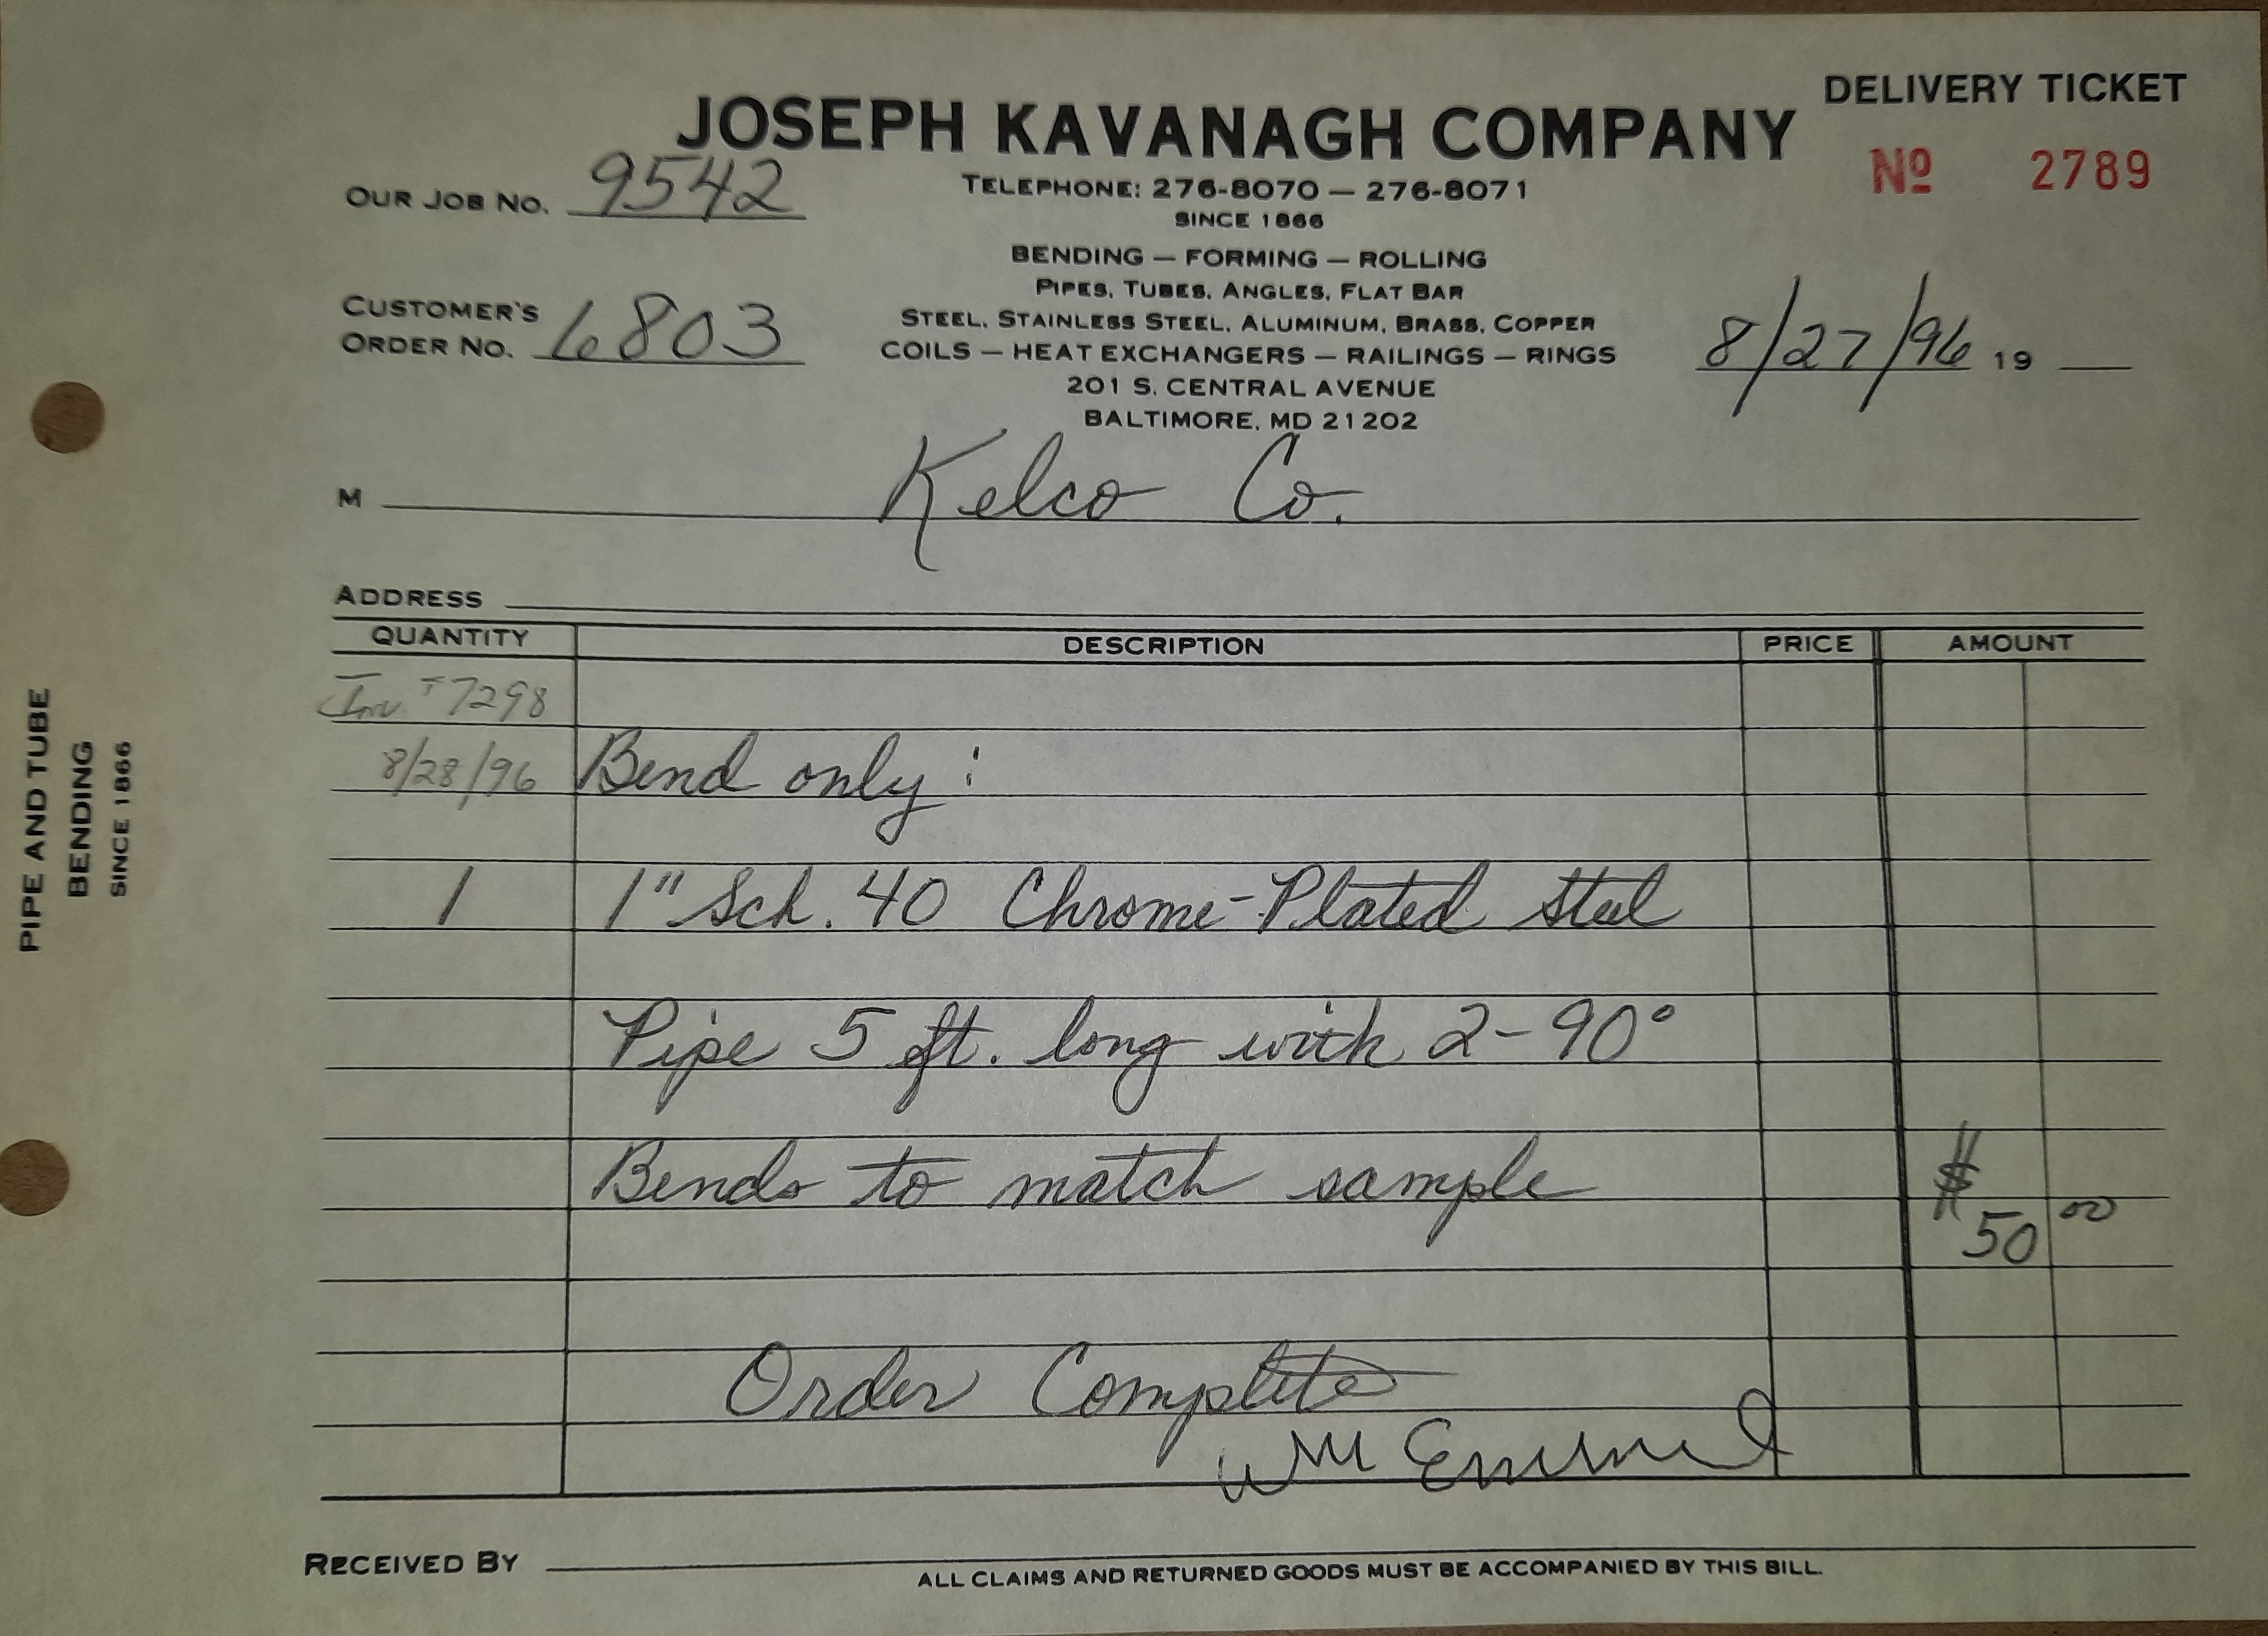 DELIVERY TICKET
JOSEPH KAVANAGH COMPANY
Nº 2789
OUR JOB NO. 9542
TELEPHONE: 276-8070 — 276-8071
SINCE 1866
BENDING — FORMING — ROLLING
PIPES, TUBES, ANGLES, FLAT BAR
CUSTOMER'S
ORDER NO. 6803
STEEL, STAINLESS STEEL, ALUMINUM, BRASS, COPPER
COILS — HEAT EXCHANGERS — RAILINGS — RINGS
8/27/96 19
201 S. CENTRAL AVENUE
BALTIMORE, MD 21202
M Kelco Co.
ADDRESS
QUANTITY DESCRIPTION PRICE AMOUNT
Inv. # 7298
8/28/96 Bend only:
1 1" Sch. 40 Chrome-Plated Steel
Pipe 5 ft. long with 2-90°
Bends to match sample
$ 50 00
Order Complete
Wm
RECEIVED BY
ALL CLAIMS AND RETURNED GOODS MUST BE ACCOMPANIED BY THIS BILL.
PIPE AND TUBE
BENDING
SINCE 1866